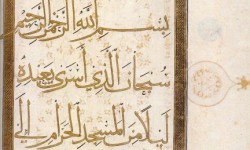 بسم الله الرحمن الرحيم
سبحان الذي أسرى بعبده
ليلا من المسجد الحرام إلى